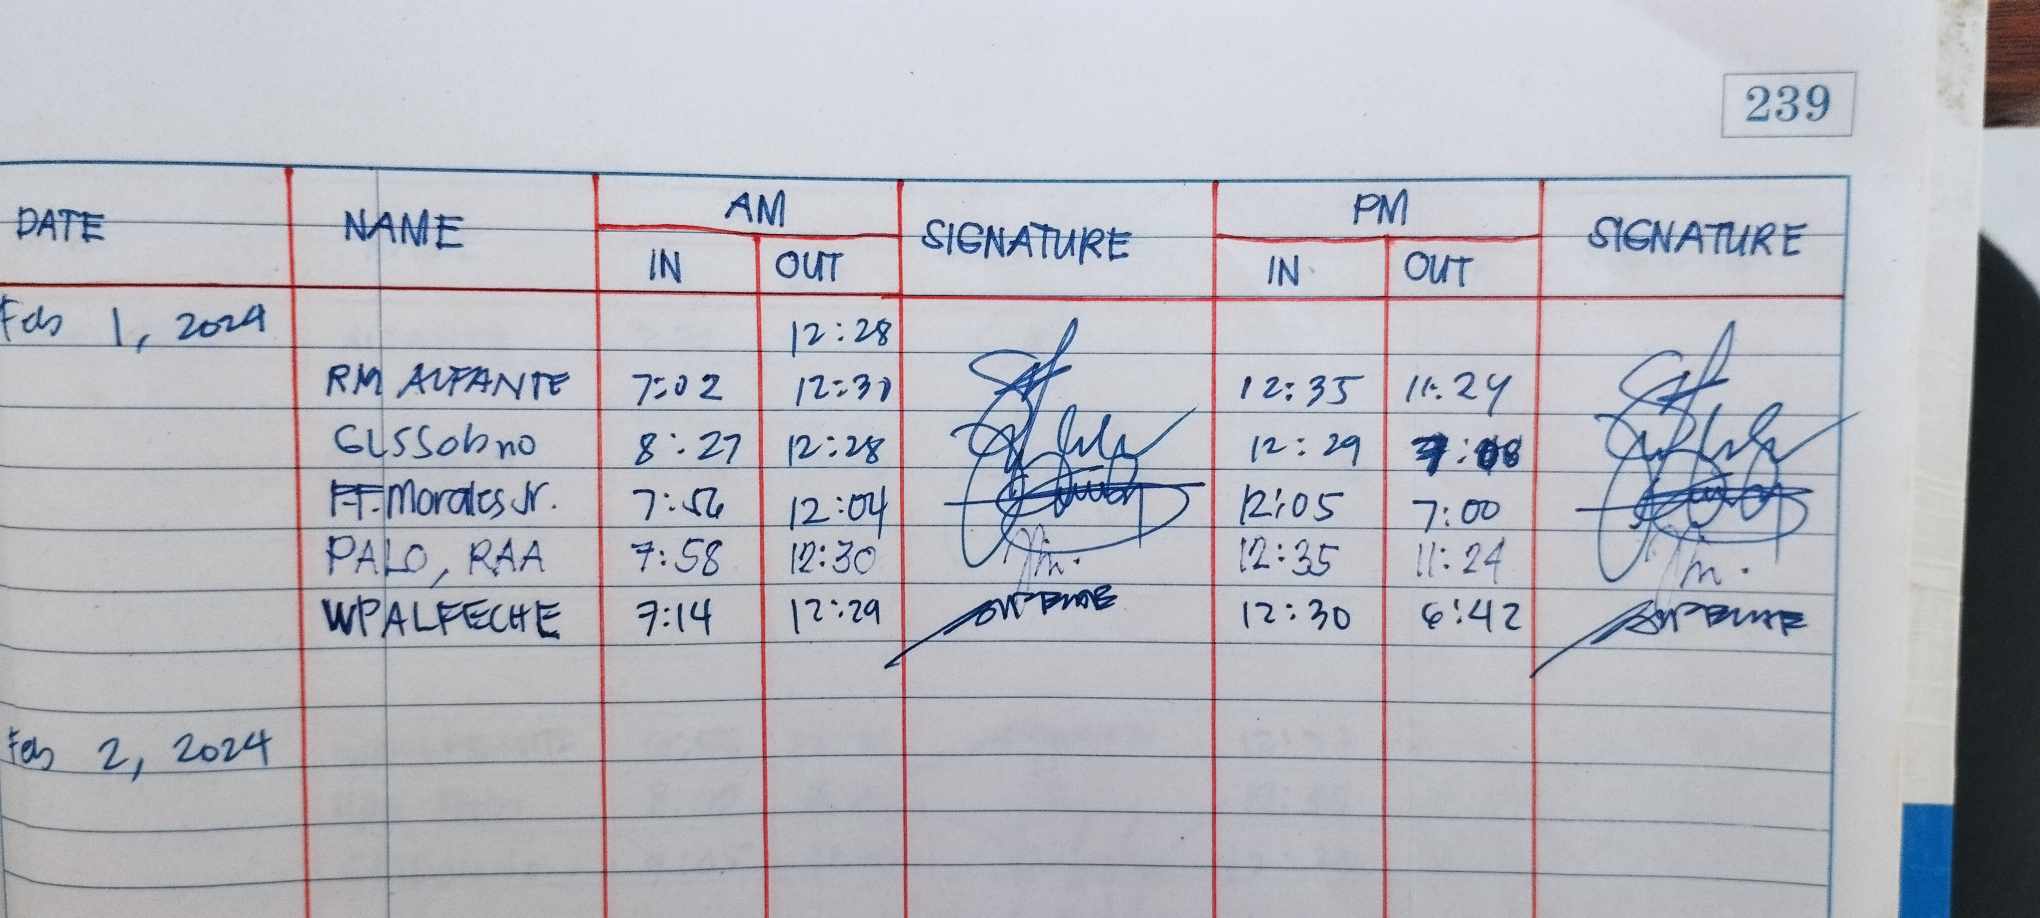 239
DATE NAME AM SIGNATURE PM SIGNATURE
IN OUT IN OUT
Feb 1, 2024 12:28
RM ALFANTE 7:02 12:30 12:35 11:24
GLSSobno 8:27 12:28 12:29 7:08
FF. Morales Jr. 7:56 12:04 12:05 7:00
PALO, RAA 7:58 12:30 12:35 11:24
WPALFECHE 7:14 12:29 12:30 6:42
Feb 2, 2024